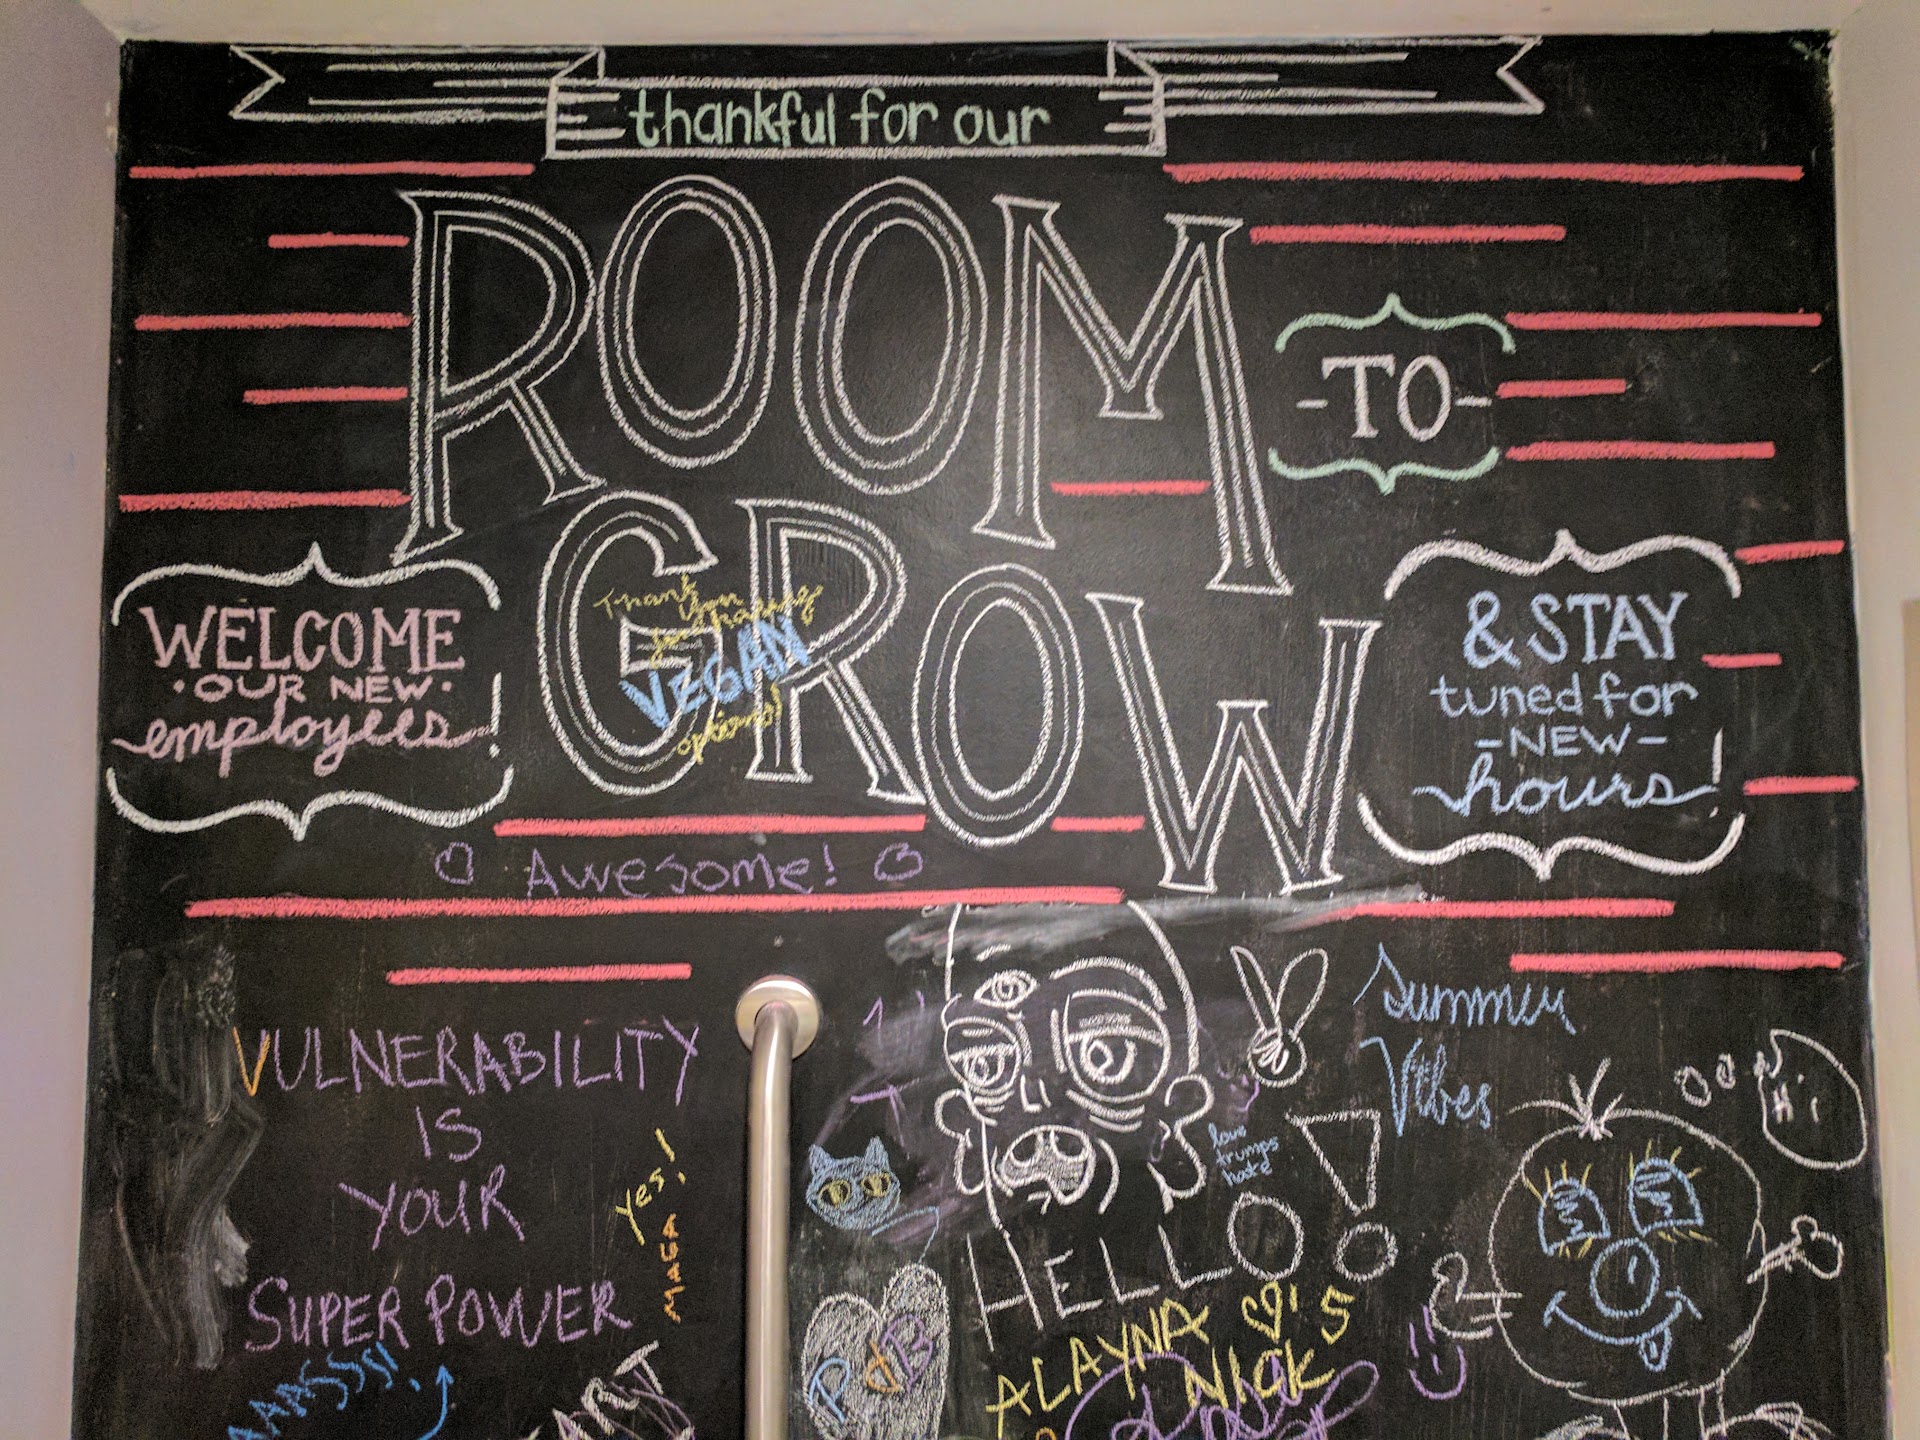 thankful for our
ROOM
-TO-
GROW
WELCOME
·OUR NEW·
employees!
Thank
you
for having
VEGAN
options!
& STAY
tuned for
-NEW-
hours!
Awesome!
VULNERABILITY
IS
YOUR
SUPER POWER
Yes!
MAGA
Summer
Vibes
love
trumps
hate
HELLO!
ALAYNA ♡'S
NICK